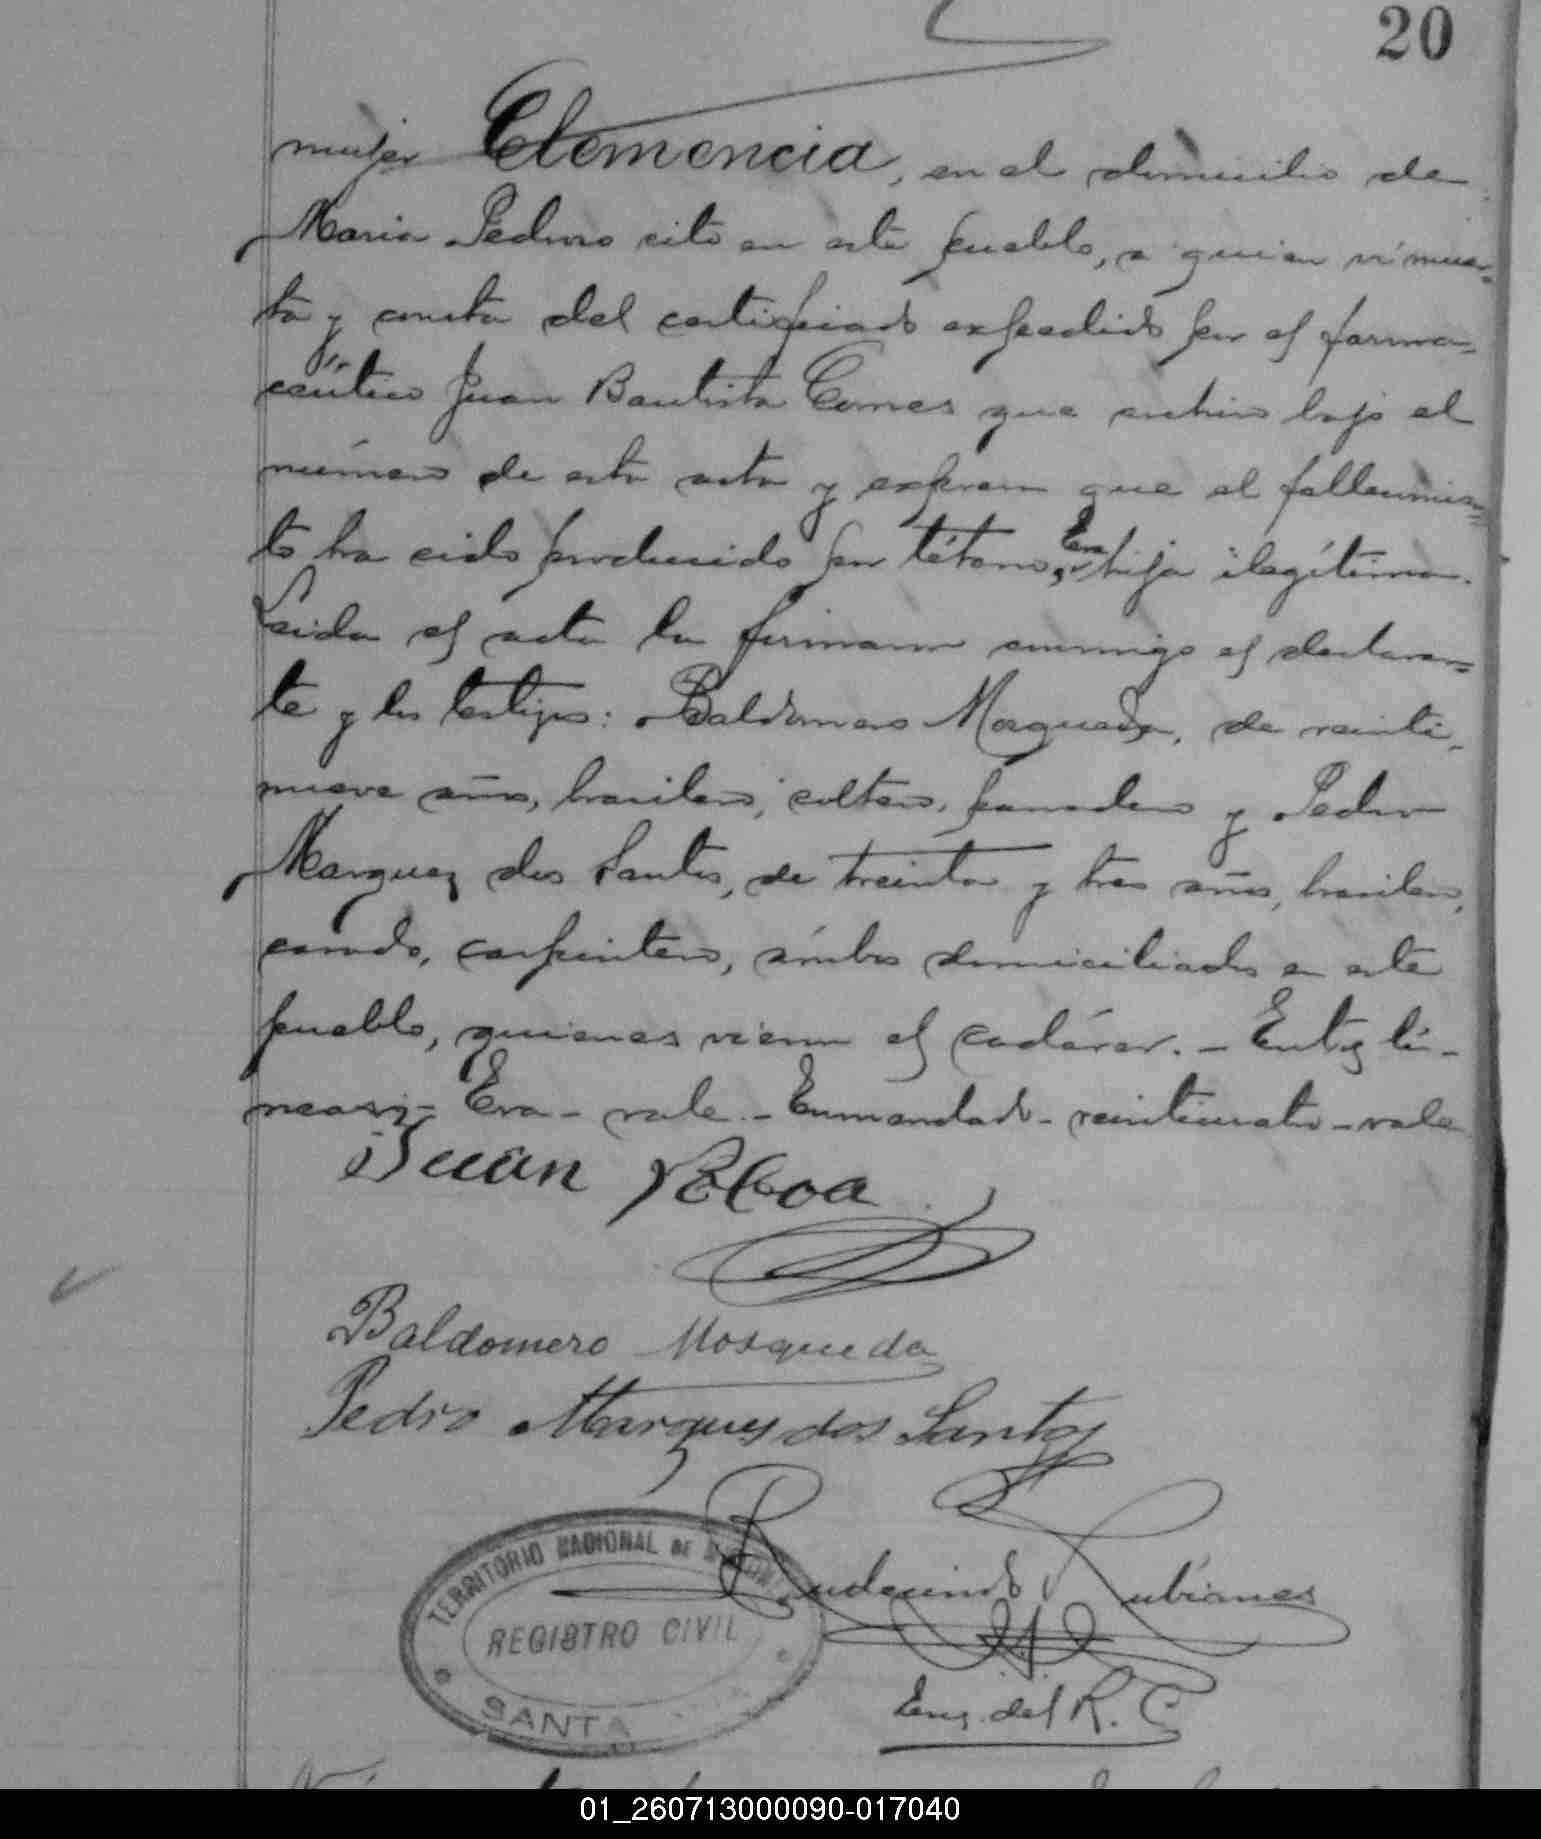 20
mujer Clemencia, en el domicilio de
Maria Pedroso sito en este pueblo, a quien ví muer-
ta y consta del certificado expedido por el farma-
céutico Juan Bautista Comes que archivo bajo el
número de esta acta y expresa que el fallecimien-
to ha sido producido por tétano, Era hija ilegítima.
Leida el acta la firmaron conmigo el declaran-
te y los testigos: Baldomero Mosqueda, de veinti-
nueve años, brasilero, soltero, panadero y Pedro
Marquez dos Santos, de treinta y tres años, brasilero,
casado, carpintero, ámbos domiciliados en este
pueblo, quienes vieron el cadáver. - Entre lí-
neas: - Era - vale. - Enmendado - veinticuatro - vale
Juan
Baldomero Mosqueda
Pedro Marques dos Santos
Rudecindo Rubianes
Enc. del R. C
TERRITORIO NACIONAL DE
REGISTRO CIVIL
SANTA
01_260713000090-017040